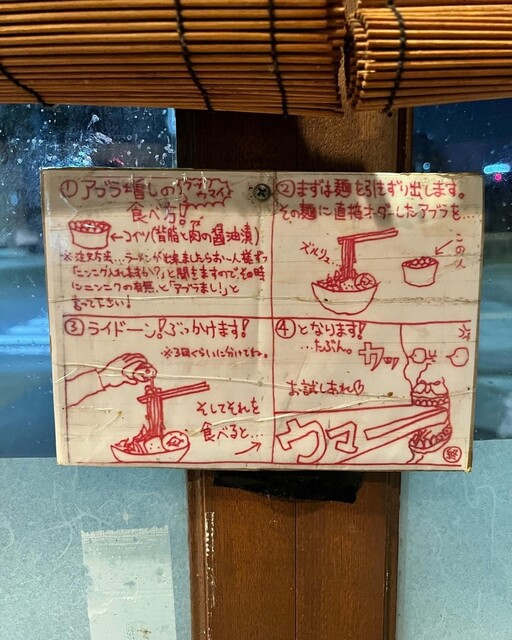 ① アブラ増しの
食べ方!
ウマイ
←コイツ(背脂と肉の醤油漬)
※注文方法…ラーメンが出来ましたらお一人様ずつ
「ニンニク入れますか?」と聞きますのでその時
にニンニクの有無と「アブラまし!」と
言って下さい!
② まずは麺を引きずり出します。
その麺に直接オーダーしたアブラを…
ズルリュ
この人
③ ライドーン!ぶっかけます!
※3回くらいに分けてね。
そしてそれを
食べると…
④ となります!
…たぶん。
ウッ
お試しあれ♡
ウマー
終